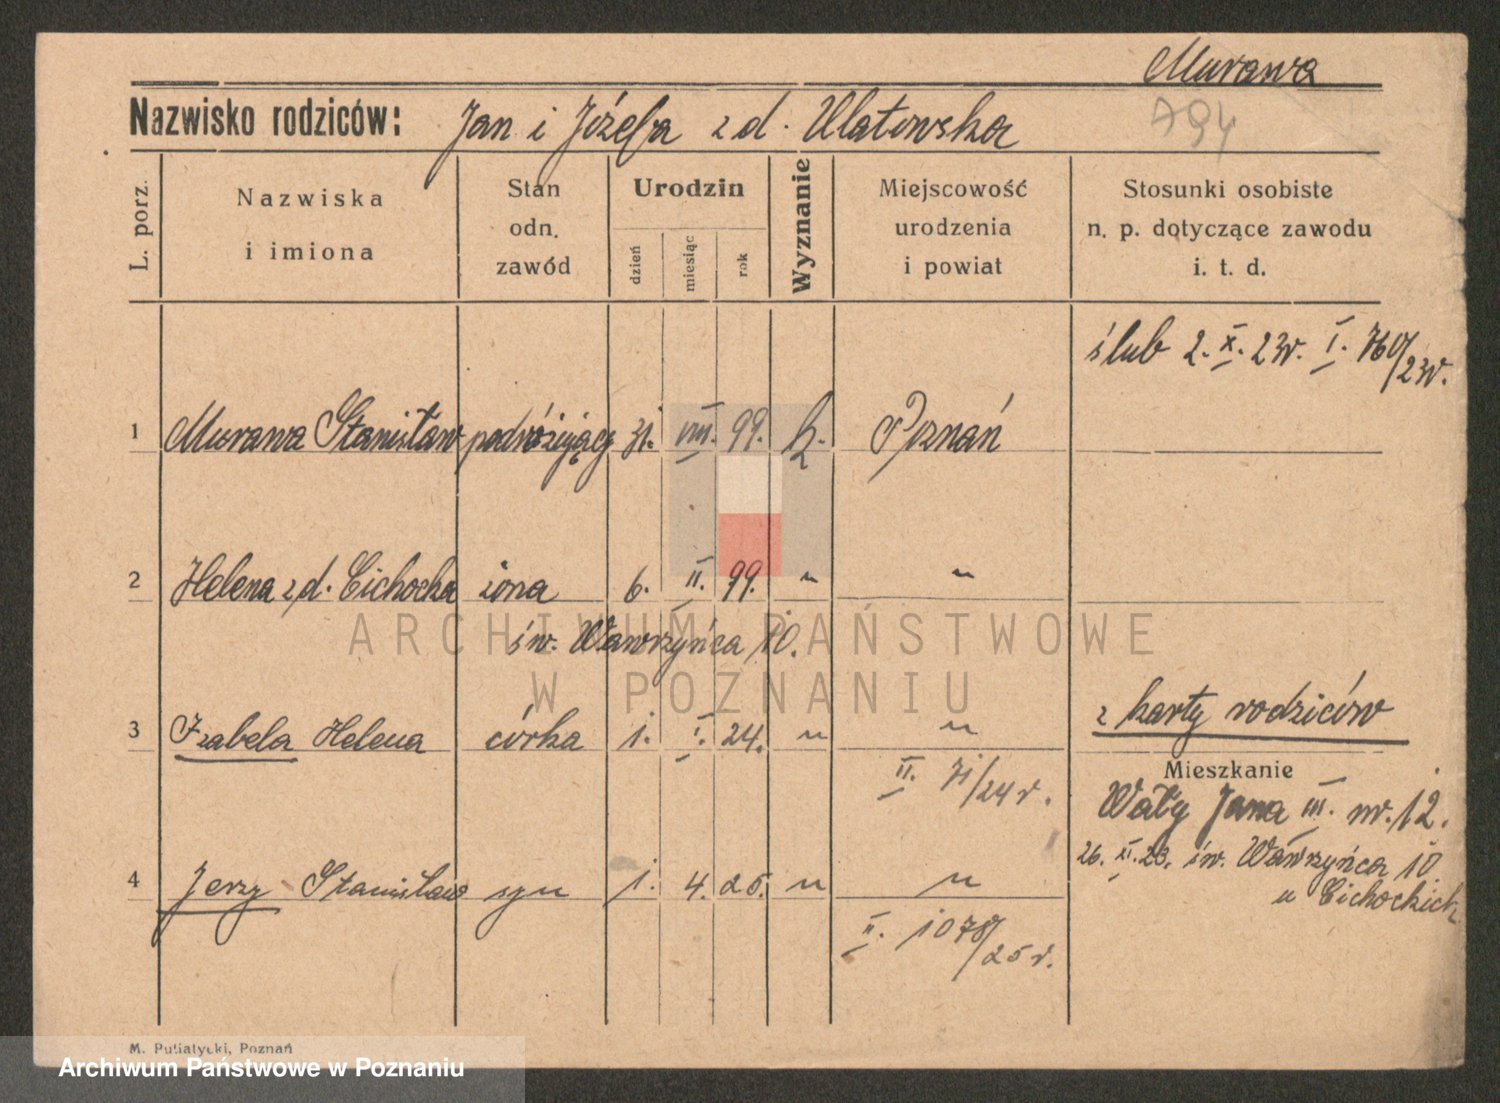 Murawa
Nazwisko rodziców: Jan i Józefa z d. Ulatowska
794
L. porz.
Nazwiska
i imiona
Stan
odn.
zawód
Urodzin
dzień
miesiąc
rok
Wyznanie
Miejscowość
urodzenia
i powiat
Stosunki osobiste
n. p. dotyczące zawodu
i. t. d.
ślub 2. X. 23r. I. 760/23r.
1 Murawa Stanisław podróżujący 31. VIII. 99. k. Poznań
2 Helena z d. Cichocka żona 6. II. 99. " "
św. Wawrzyńca 10.
z karty rodziców
3 Izabela Helena córka 1. I. 24. " "
Mieszkanie
II. 71/24 r.
Wały Jana III. nr. 12.
26. XI. 23. św. Wawrzyńca 10.
u Cichockich
4 Jerzy Stanisław syn 1. 4. 25. " "
II. 1078/25 r.
M. Putiatycki, Poznań
ARCHIWUM PAŃSTWOWE
W POZNANIU
Archiwum Państwowe w Poznaniu